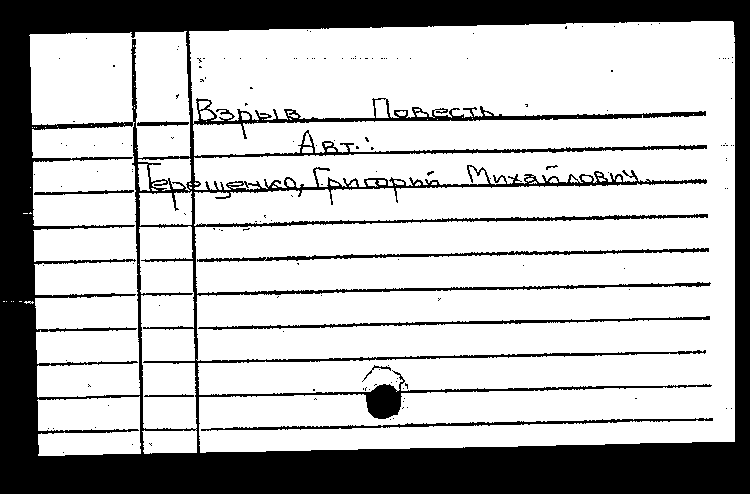 Взрыв. Повесть.
Авт.:
Терещенко, Григорий Михайлович.